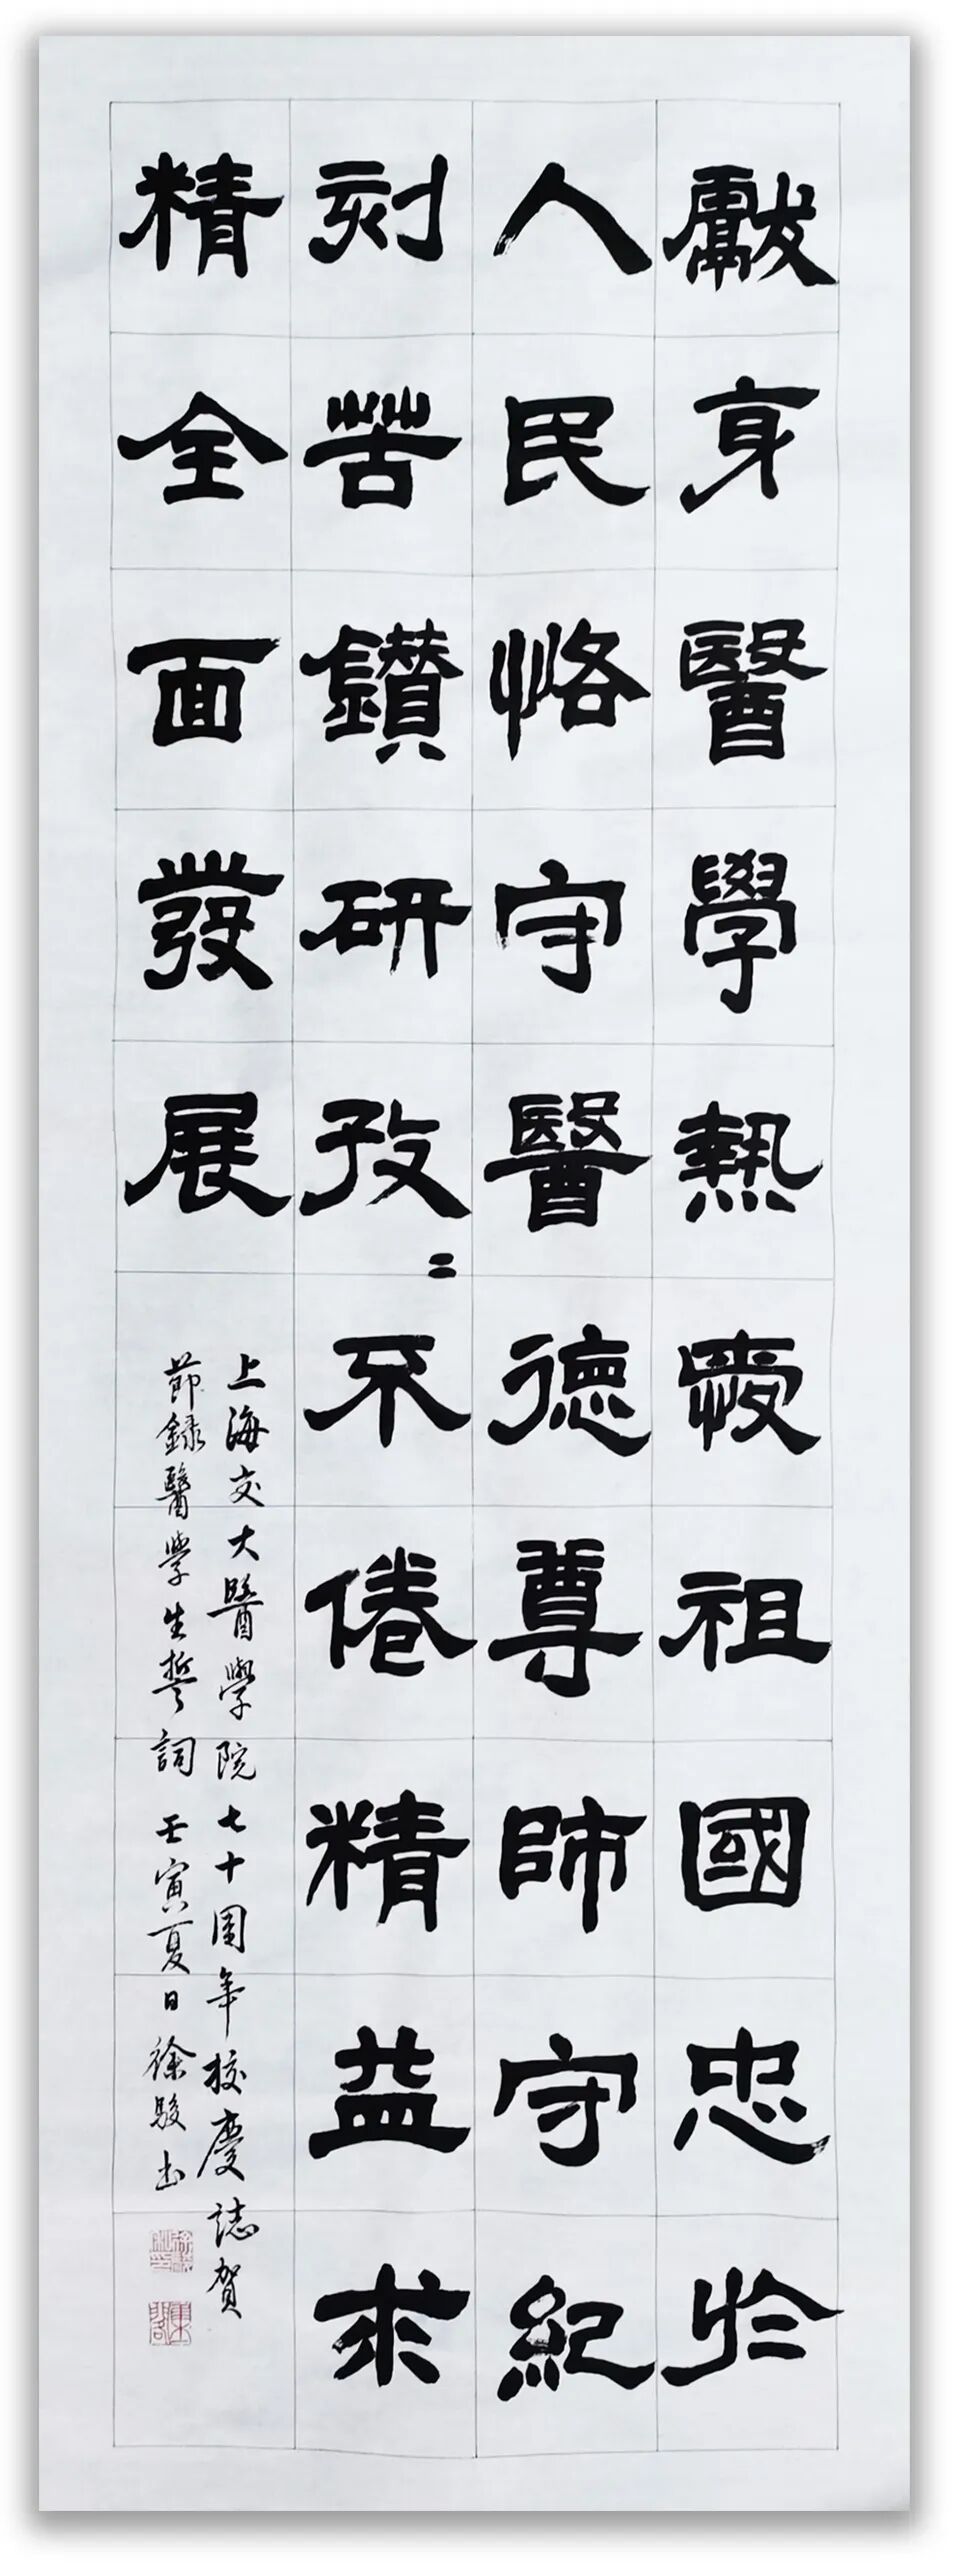 獻身醫學熱愛祖國忠於
人民恪守醫德尊師守紀
刻苦鑽研孜〻不倦精益求
精全面發展
上海交大醫學院七十周年校慶誌賀
節錄醫學生誓詞 壬寅夏日徐駿書